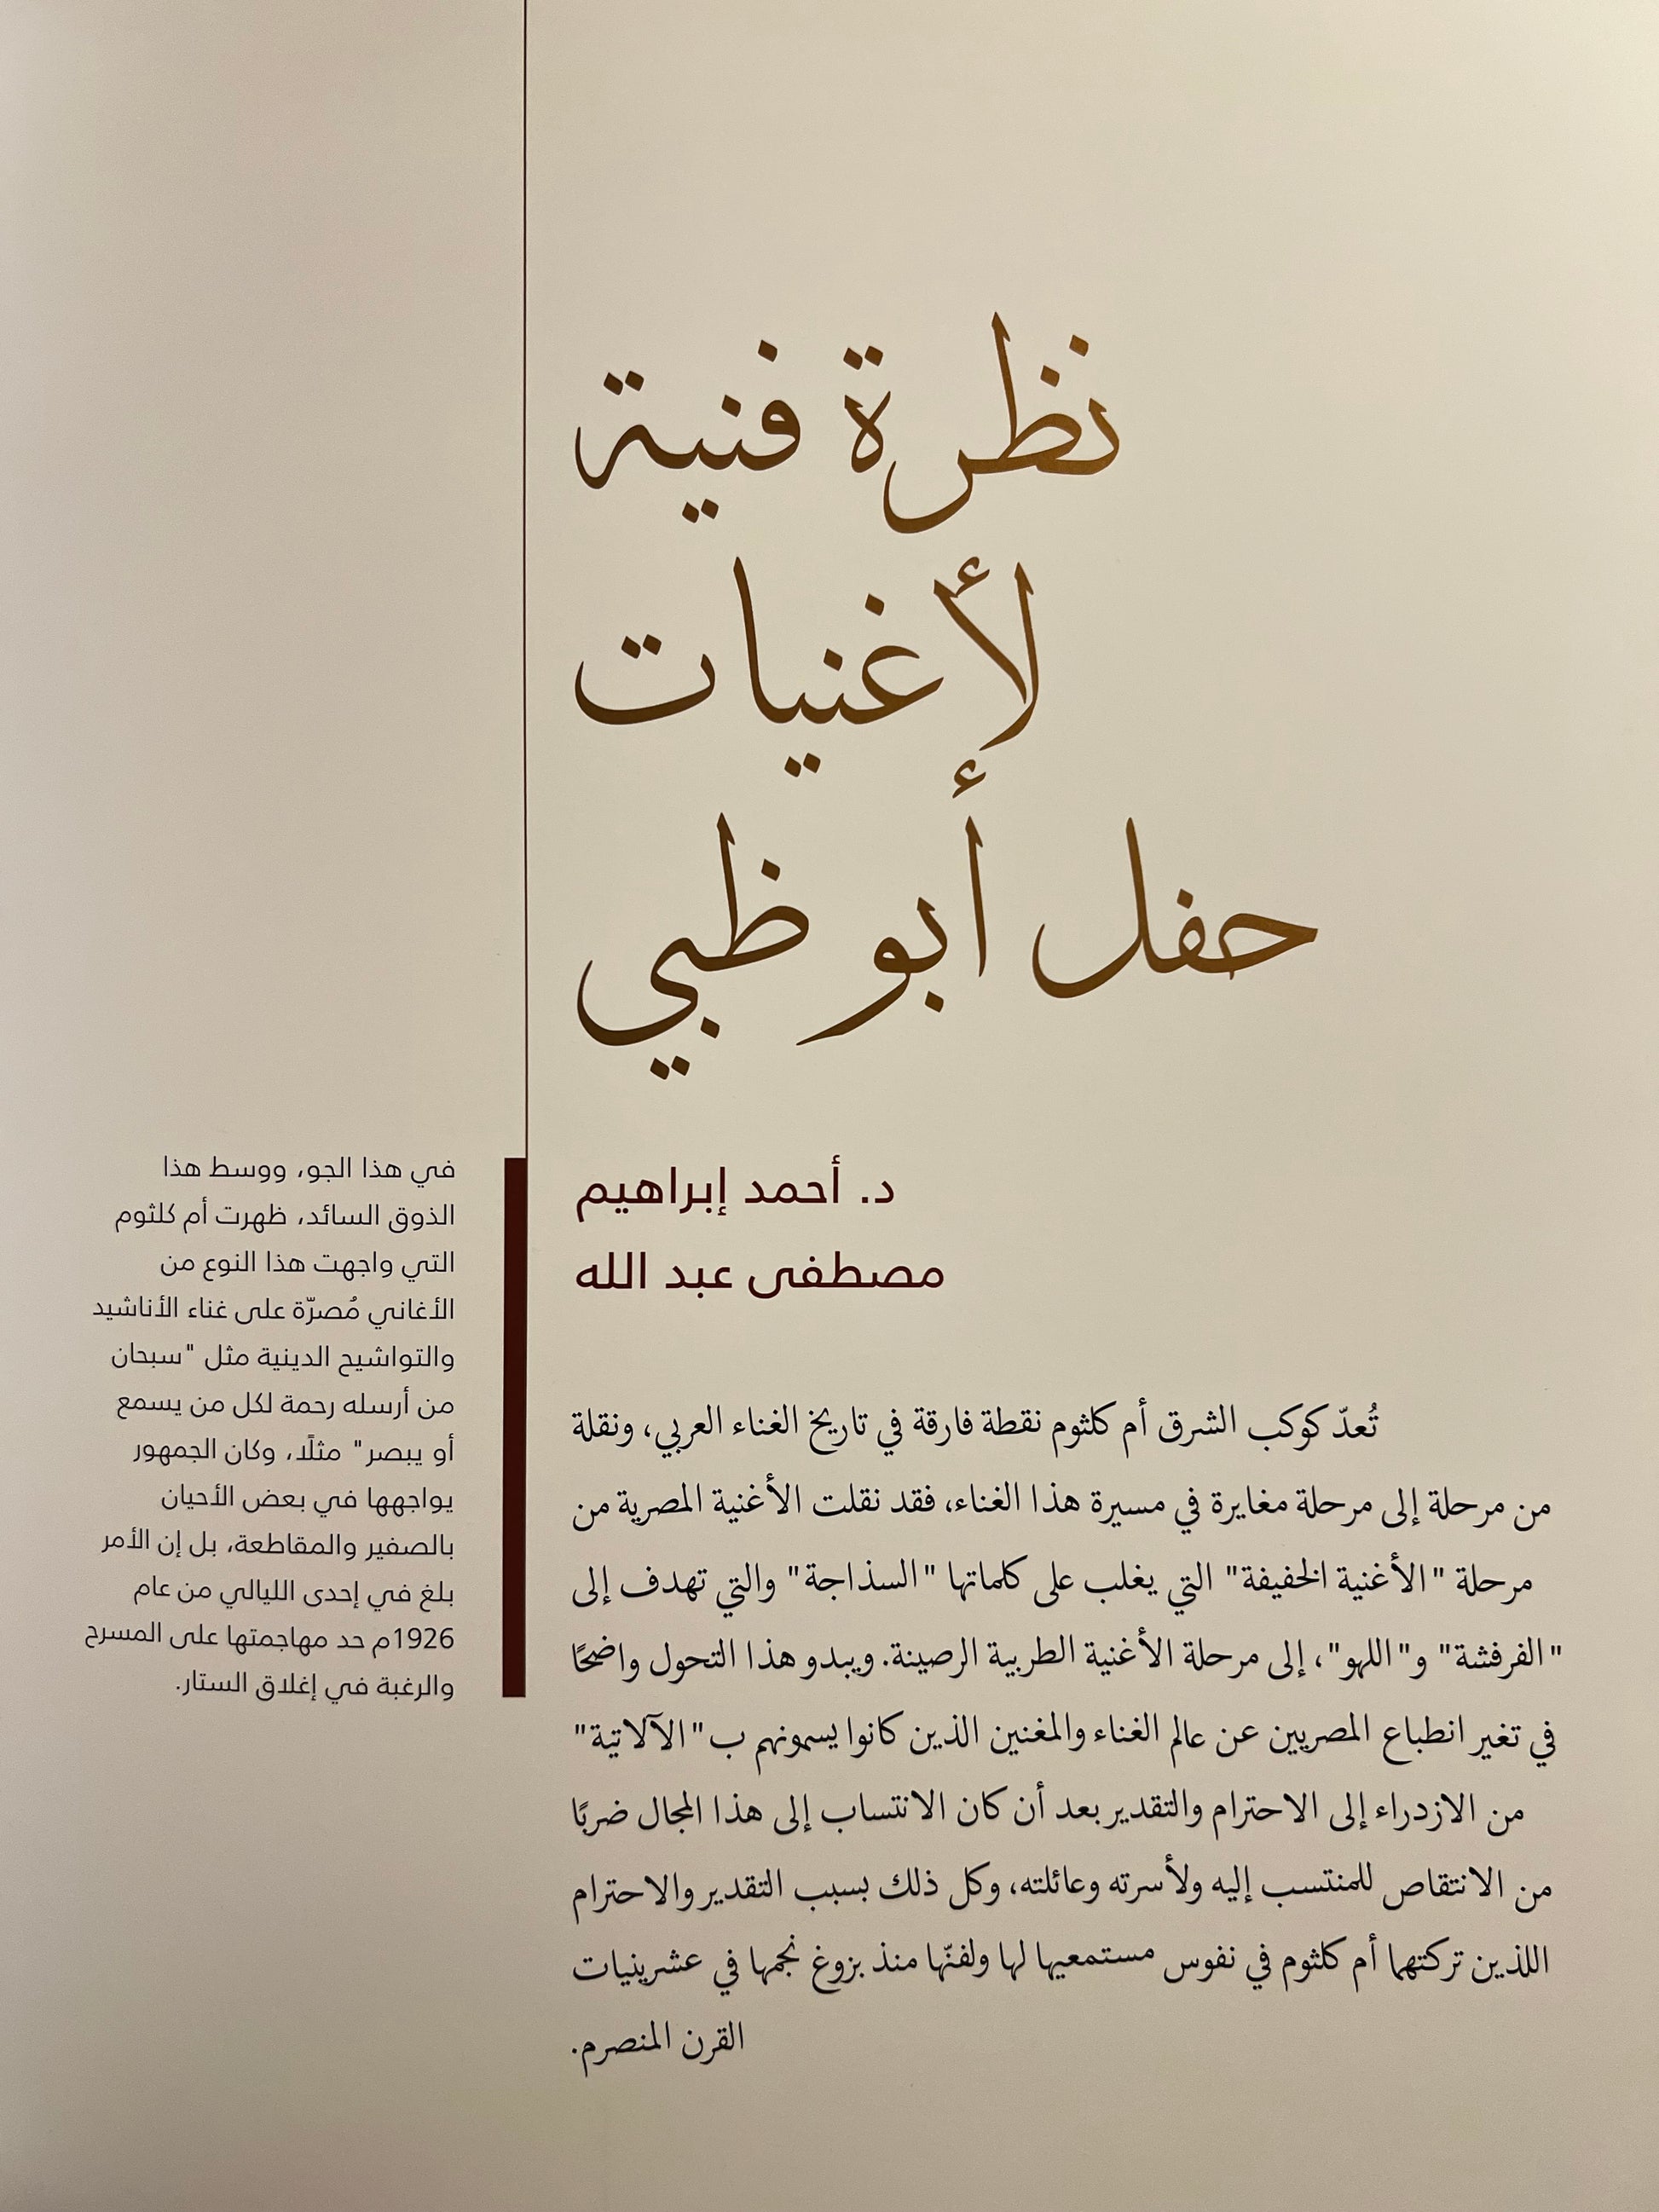 نظرة فنية
لأغنيات
حفل أبو ظبي
د. أحمد إبراهيم
مصطفى عبد الله
تُعدّ كوكب الشرق أم كلثوم نقطة فارقة في تاريخ الغناء العربي، ونقلة
من مرحلة إلى مرحلة مغايرة في مسيرة هذا الغناء، فقد نقلت الأغنية المصرية من
مرحلة "الأغنية الخفيفة" التي يغلب على كلماتها "السذاجة" والتي تهدف إلى
"الفرفشة" و"اللهو"، إلى مرحلة الأغنية الطربية الرصينة. ويبدو هذا التحول واضحًا
في تغير انطباع المصريين عن عالم الغناء والمغنين الذين كانوا يسمونهم ب"الآلاتية"
من الازدراء إلى الاحترام والتقدير بعد أن كان الانتساب إلى هذا المجال ضربًا
من الانتقاص للمنتسب إليه ولأسرته وعائلته، وكل ذلك بسبب التقدير والاحترام
اللذين تركتهما أم كلثوم في نفوس مستمعيها لها ولفنّها منذ بزوغ نجمها في عشرينيات
القرن المنصرم.
في هذا الجو، ووسط هذا
الذوق السائد، ظهرت أم كلثوم
التي واجهت هذا النوع من
الأغاني مُصرّة على غناء الأناشيد
والتواشيح الدينية مثل "سبحان
من أرسله رحمة لكل من يسمع
أو يبصر" مثلًا، وكان الجمهور
يواجهها في بعض الأحيان
بالصفير والمقاطعة، بل إن الأمر
بلغ في إحدى الليالي من عام
1926م حد مهاجمتها على المسرح
والرغبة في إغلاق الستار.